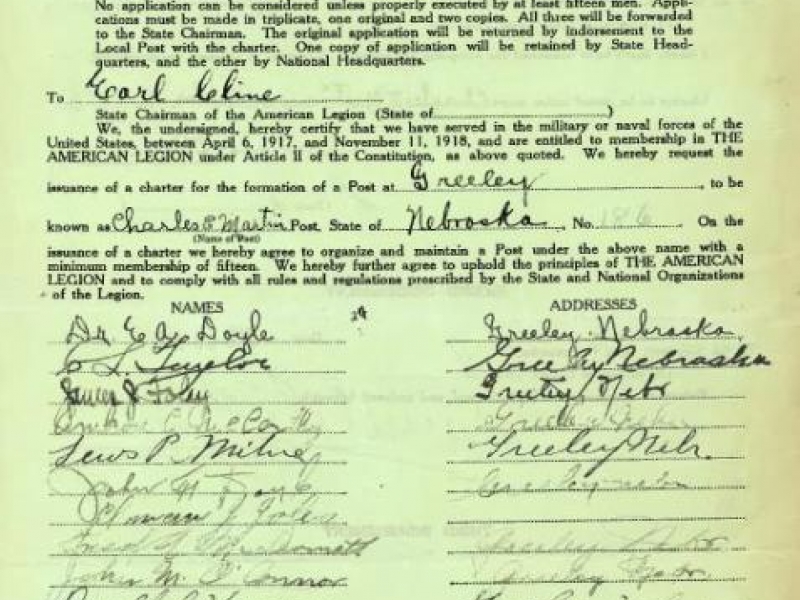 No application can be considered unless properly executed by at least fifteen men. Appli-
cations must be made in triplicate, one original and two copies. All three will be forwarded
to the State Chairman. The original application will be returned by indorsement to the
Local Post with the charter. One copy of application will be retained by State Head-
quarters, and the other by National Headquarters.
To Earl Cline
State Chairman of the American Legion (State of )
We, the undersigned, hereby certify that we have served in the military or naval forces of the
United States, between April 6, 1917, and November 11, 1918, and are entitled to membership in THE
AMERICAN LEGION under Article II of the Constitution, as above quoted. We hereby request the
issuance of a charter for the formation of a Post at Greeley, to be
known as Charles E Martin Post, State of Nebraska, No. 186. On the
(Name of Post)
issuance of a charter we hereby agree to organize and maintain a Post under the above name with a
minimum membership of fifteen. We hereby further agree to uphold the principles of THE AMERICAN
LEGION and to comply with all rules and regulations prescribed by the State and National Organizations
of the Legion.
NAMES ADDRESSES
Dr. E. A. Doyle Greeley, Nebraska
Greeley Nebraska
James J Foley Greeley, Nebr
McCarthy
P. Milne Greeley Nebr.
John Greeley
Foley
McDermott Greeley Nebr
John M. O'Connor Greeley Nebr